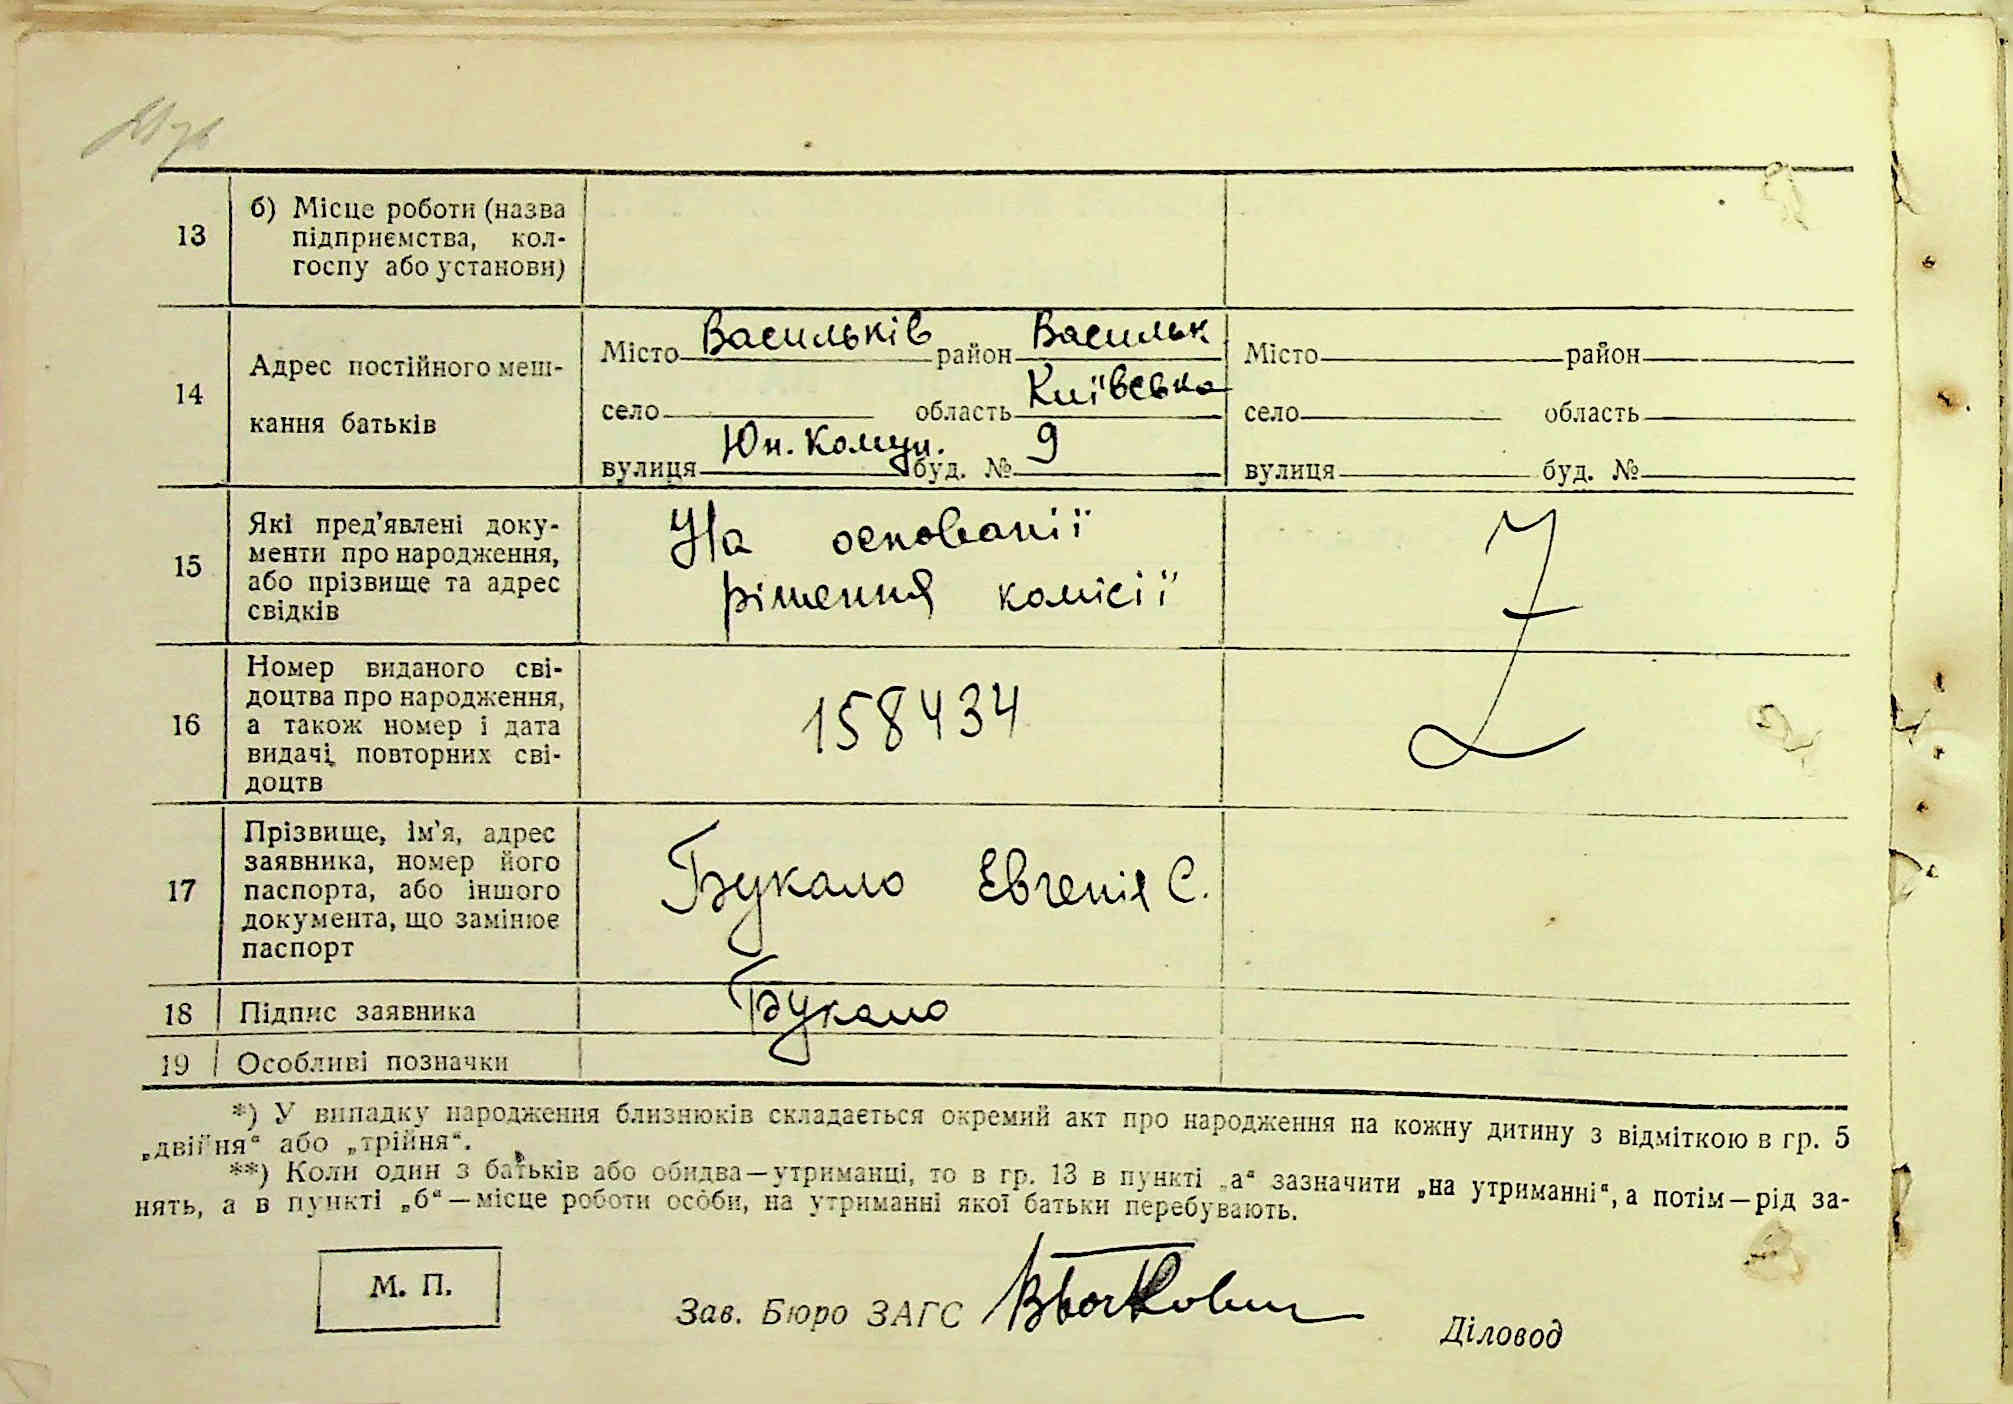 13
б) Місце роботи (назва
підприємства, кол-
госпу або установи)
14
Адрес постійного меш-
кання батьків
Місто Васильків район Васильк
село область Київська
вулиця Юн. Комун. буд. № 9
Місто район
село область
вулиця буд. №
15
Які пред'явлені доку-
менти про народження,
або прізвище та адрес
свідків
На основанії
рішення комісії
16
Номер виданого сві-
доцтва про народження,
а також номер і дата
видачі повторних сві-
доцтв
158434
17
Прізвище, ім'я, адрес
заявника, номер його
паспорта, або іншого
документа, що замінює
паспорт
Букало Евгенія С.
18
Підпис заявника
Букало
19
Особливі позначки
*) У випадку народження близнюків складається окремий акт про народження на кожну дитину з відміткою в гр. 5
„двійня“ або „трійня“.
**) Коли один з батьків або обидва—утриманці, то в гр. 13 в пункті „а“ зазначити „на утриманні“, а потім—рід за-
нять, а в пункті „б“—місце роботи особи, на утриманні якої батьки перебувають.
М. П.
Зав. Бюро ЗАГС
Діловод